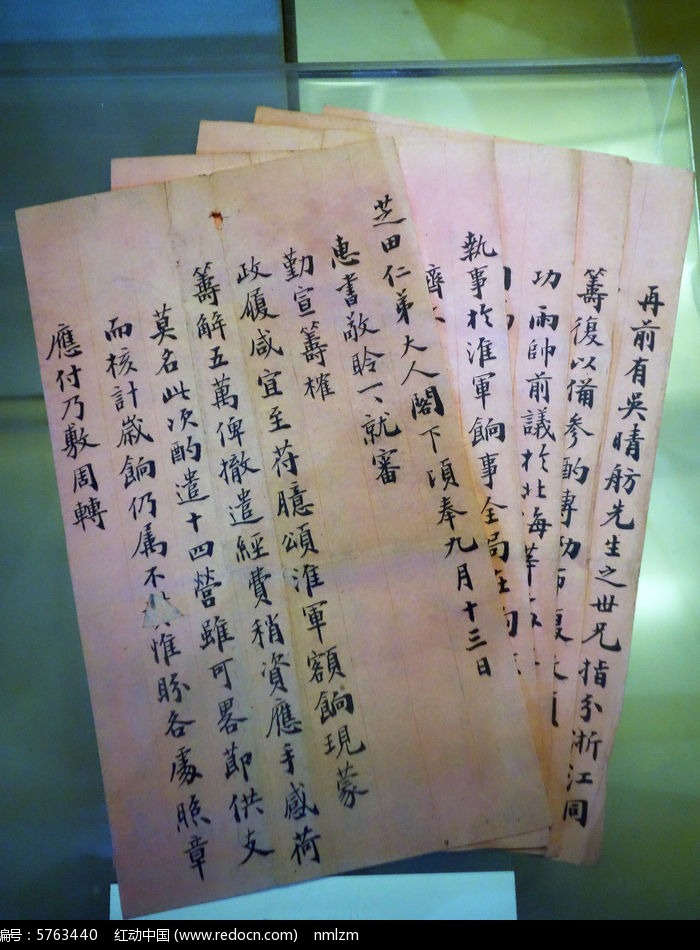 芝田仁弟大人閣下頃奉九月十三日
惠書敬聆一〻就審
勤宣籌榷
政履咸宜至符臆頌淮軍額餉現蒙
籌解五萬俾撤遣經費稍資應手感荷
莫名此次酌遣十四營雖可畧節供支
而核計歲餉仍属不惟盼各處照章
應付乃敷周轉
執事於淮軍餉事全局在
濟
功兩帥前議於北海
籌復以備參酌專
再前有吳晴舫先生之世兄指分浙江同
编号：5763440 红动中国 (www.redocn.com) nmlzm